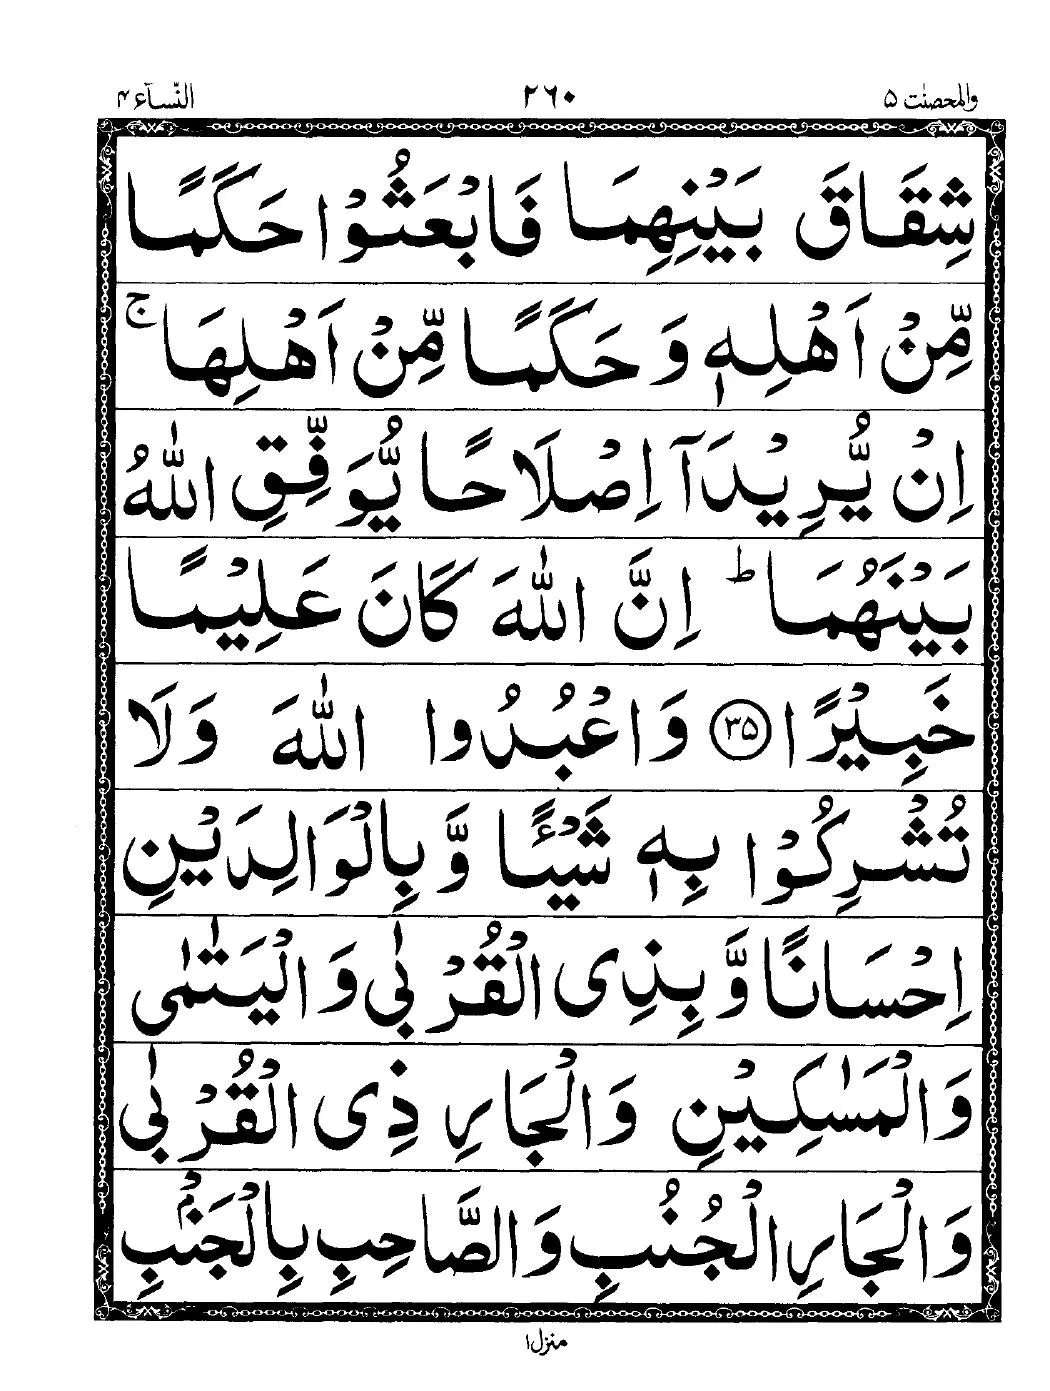 والمحصنٰت ۵ ۲۶۰ النّسآء ۴
شِقَاقَ بَيْنِهِمَا فَابْعَثُوْا حَكَمًا
مِّنْ اَهْلِهٖ وَ حَكَمًا مِّنْ اَهْلِهَا ۚ
اِنْ يُّرِيْدَآ اِصْلَاحًا يُّوَفِّقِ اللّٰهُ
بَيْنَهُمَا ؕ اِنَّ اللّٰهَ كَانَ عَلِيْمًا
خَبِيْرًا ۳۵ وَاعْبُدُوا اللّٰهَ وَلَا
تُشْرِكُوْا بِهٖ شَيْـًٔا وَّ بِالْوَالِدَيْنِ
اِحْسَانًا وَّ بِذِى الْقُرْبٰى وَالْيَتٰمٰى
وَالْمَسٰكِيْنِ وَالْجَارِ ذِى الْقُرْبٰى
وَالْجَارِ الْجُنُبِ وَالصَّاحِبِ بِالْجَنْۢبِ
منزل ۱